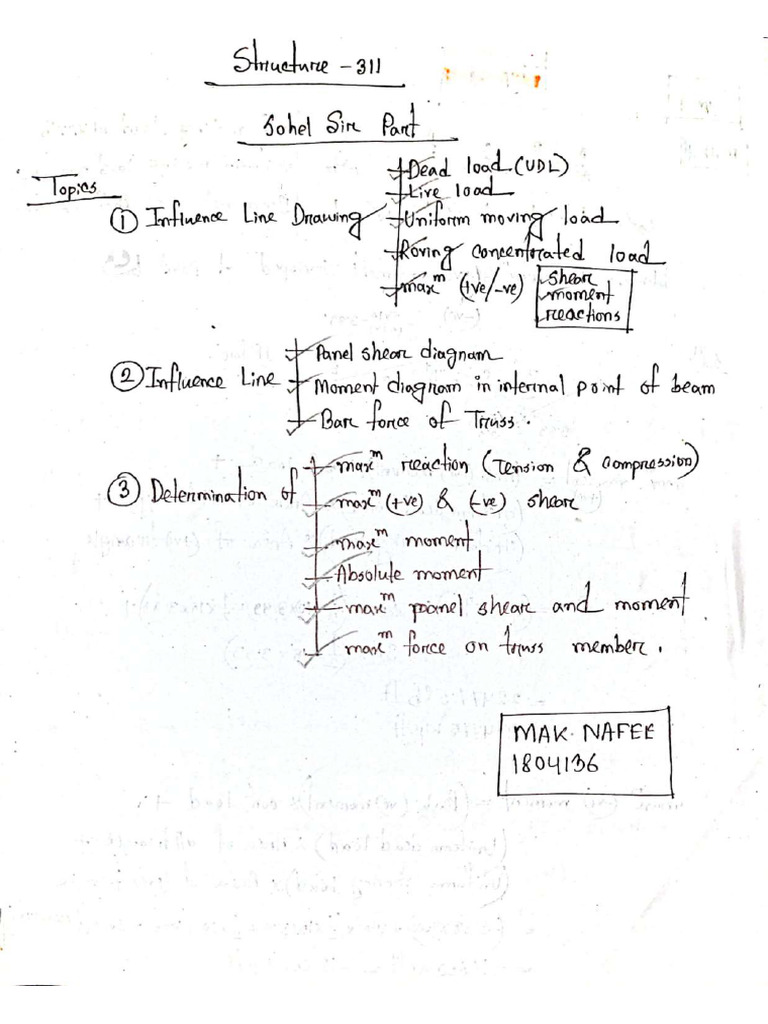 Structure - 311
Sohel Sir Part
Topics
Dead load (UDL)
Live load
① Influence Line Drawing
Uniform moving load
Roving concentrated load
maxᵐ (+ve/-ve)
shear
moment
reactions
Panel shear diagram
② Influence Line
Moment diagram in internal point of beam
Bar force of Truss.
maxᵐ reaction (Tension & compression)
③ Determination of
maxᵐ (+ve) & (-ve) shear
maxᵐ moment
Absolute moment
maxᵐ panel shear and moment.
maxᵐ force on truss member.
MAK. NAFEE
1804136